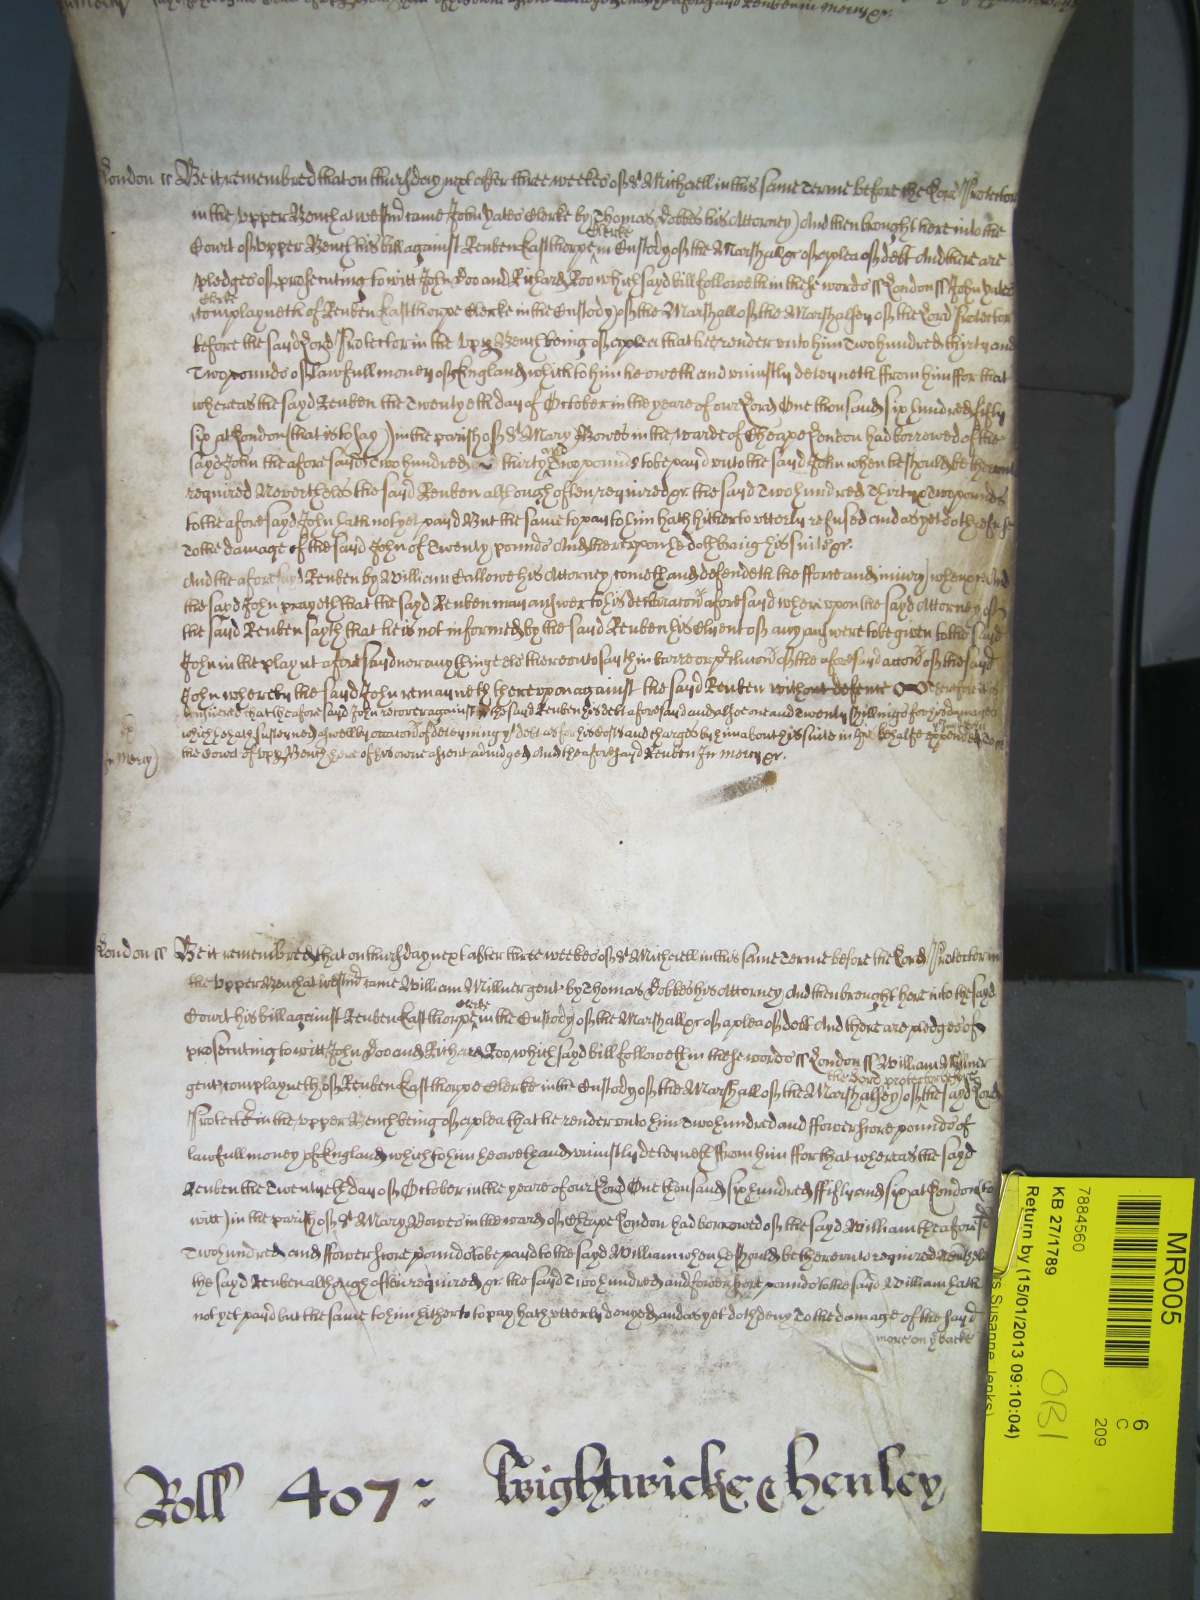 Reuben in mercy &c.
London ss Be it remembred that on thursday next after three weekes of St Michaell in this same Terme before the Lord Protector
in the upper Bench at Westmr came John Yates Clerke by Thomas Dobbes his Attorney And then brought here into the
Clerke
Court of Upper Bench his bill against Reuben Easthorpe in Custody of the Marshall &c of a plea of debt And there are
pledges of prosecuting to witt John Doo and Richard Roo which sayd bill followeth in these words ss London ss John Yates
Clerke
complayneth of Reuben Easthorpe Clerke in the Custody of the Marshall of the Marshalsey of the Lord Protector
before the sayd Lord Protector in the upp Bench being of a plea that hee render unto him Two hundred thirty and
Two pounds of lawfull money of England which to him he oweth and uniustly deteyneth ffrom him ffor that
whereas the sayd Reuben the Twentyeth day of October in the yeare of our Lord One thousand six hundred fifty
six at London (that is to say) in the parish of St Mary Bowes in the warde of Cheape London had borrowed of the
and
sayd John the aforesayd Two hundred thirty Two pounds to be payd unto the sayd John when he should be thereunto
required Neverthelesse the sayd Reuben although often required &c the sayd Two hundred Thirty Two pounds
to the aforesayd John hath not yet payd But the same to pay to him hath hitherto utterly refused and as yet doth refuse
To the damage of the sayd John of Twenty pounds And thereupon he doth bring his suite &c.
And the aforesayd Reuben by William Callowe his Attorney cometh and defendeth the fforce and iniury when &c And
the sayd John prayeth that the sayd Reuben may answer to his declaracon aforesayd whereupon the sayd Attorney of
the sayd Reuben sayth that he is not informed by the sayd Reuben his Clyent of any answere to be given to the sayd
John in the playnt aforesayd nor any thinge els thereunto sayth in barre or of the aforesayd accon of the sayd
John whereby the sayd John remayneth thereupon against the sayd Reuben without defence Therefore it is
considered that the aforesayd John recover against the sayd Reuben his debt aforesayd and alsoe one and Twenty shillings for his damages
which he hath susteyned aswell by occacon of deteyning ye debt as for his costs and charges by him about his suite in yt behalfe expended
in Mercy
the Court of upp Bench here of his owne assent adiudged And the aforesayd Reuben In mercy &c.
London ss Be it remembred that on thursday next after three weekes of St Michaell in this same Terme before the Lord Protector in
the Upper Bench at Westmr came William Millner gent by Thomas Dobbes his Attorney And then brought here into the sayd
clerke
Court his bill against Reuben Easthorpe in the Custody of the Marshall &c of a plea of debt And there are pledges of
prosecuting to witt John Doo and Richard Roo which sayd bill followeth in these words ss London ss William Millner
the Lord protector before
gent complayneth of Reuben Easthorpe Clerke in the Custody of the Marshall of the Marshalsey of the sayd Lord
Protector in the Upper Bench being of a plea that he render unto him Two hundred and ffower score pounds of
lawfull money of England which to him he oweth and uniustly deteyneth ffrom him ffor that whereas the sayd
Reuben the Twentyeth day of October in the yeare of our Lord One thousand six hundred ffifty and six at London (to
witt) in the parish of St Mary Bowes in the ward of Cheape London had borrowed of the sayd William the aforesd
Two hundred and ffower score pounds to be payd to the sayd William when he should be thereunto required
the sayd Reuben although often required &c the sayd Two hundred and fower score pounds to the sayd William hath
not yet payd but the same to him hitherto to pay hath utterly denyed and as yet doth deny To the damage of the sayd
more on ye backe
Roll 407 Wightwicke & henley
MR005
6
C
209
7884560
KB 27/1789
Return by (15/01/2013 09:10:04)
OB1
Susanne Jenks)